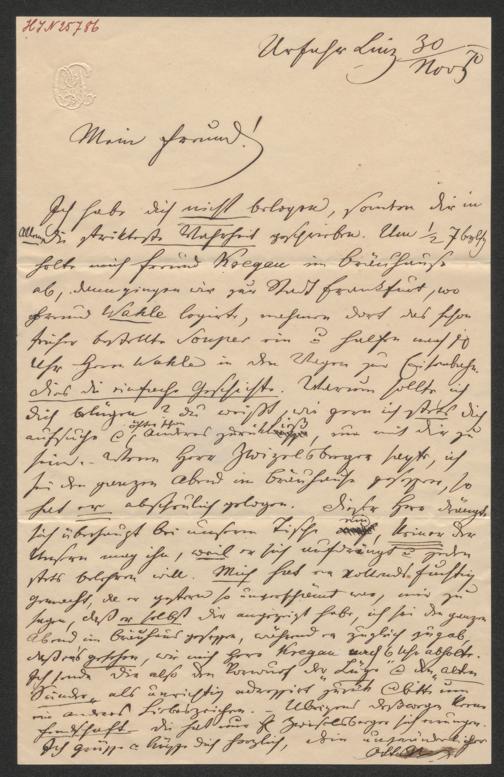 HIN 25786
Urfahr Linz 30/Nov 70
Mein Freund!
Ich habe dich nicht belogen, sondern dir in
Allem die strikteste Wahrheit geschrieben. Um 1/2 7
holte mich Freund Koegau im Bräuhause
ab, dann gingen wir zur Stadt Frankfurt, wo
Freund Wahle logirt, nahmen dort das schon
früher bestellte Souper ein u halfen nach 10
Uhr Herrn Wahle in den Wagen zur Eisenbahn.
Dies die einfache Geschichte. Warum sollte ich
dich belügen? du weißt, wie gern ich stets dich
aufsuche u. anderes zurückließ, um mit dir zu
sein. – Wenn Herr Zwizelsberger sagte, ich
sei den ganzen Abend im Bräuhause gesessen, so
hat er abscheulich gelogen. Dieser Herr drängt
sich überhaupt bei unserem Tische ein, keiner der
Unseren mag ihn, weil er sich aufdrängt u jeden
stets belehren will. Mich hat er vollends fuchtig
gemacht, da er gestern so unverschämt war, mir zu
sagen, daß er selbst dir angezeigt habe, ich sei den ganzen
Abend im Bräuhaus gesessen, während er zugleich zugab,
daß er's gesehen, wie mich Herr Koegau nach 6 Uhr abholte.
Ich sende dir also den Vorwurf der "Lüge" u den "alten
Sünder" als unrichtig adressirt zurück u bitte um
ein anderes Liebeszeichen. – Uebrigens deßwegen keine
Feindschaft, die hat nur H Zwizelsberger sich errungen.
Ich grüße u küsse dich herzlich, dein unveränderlicher